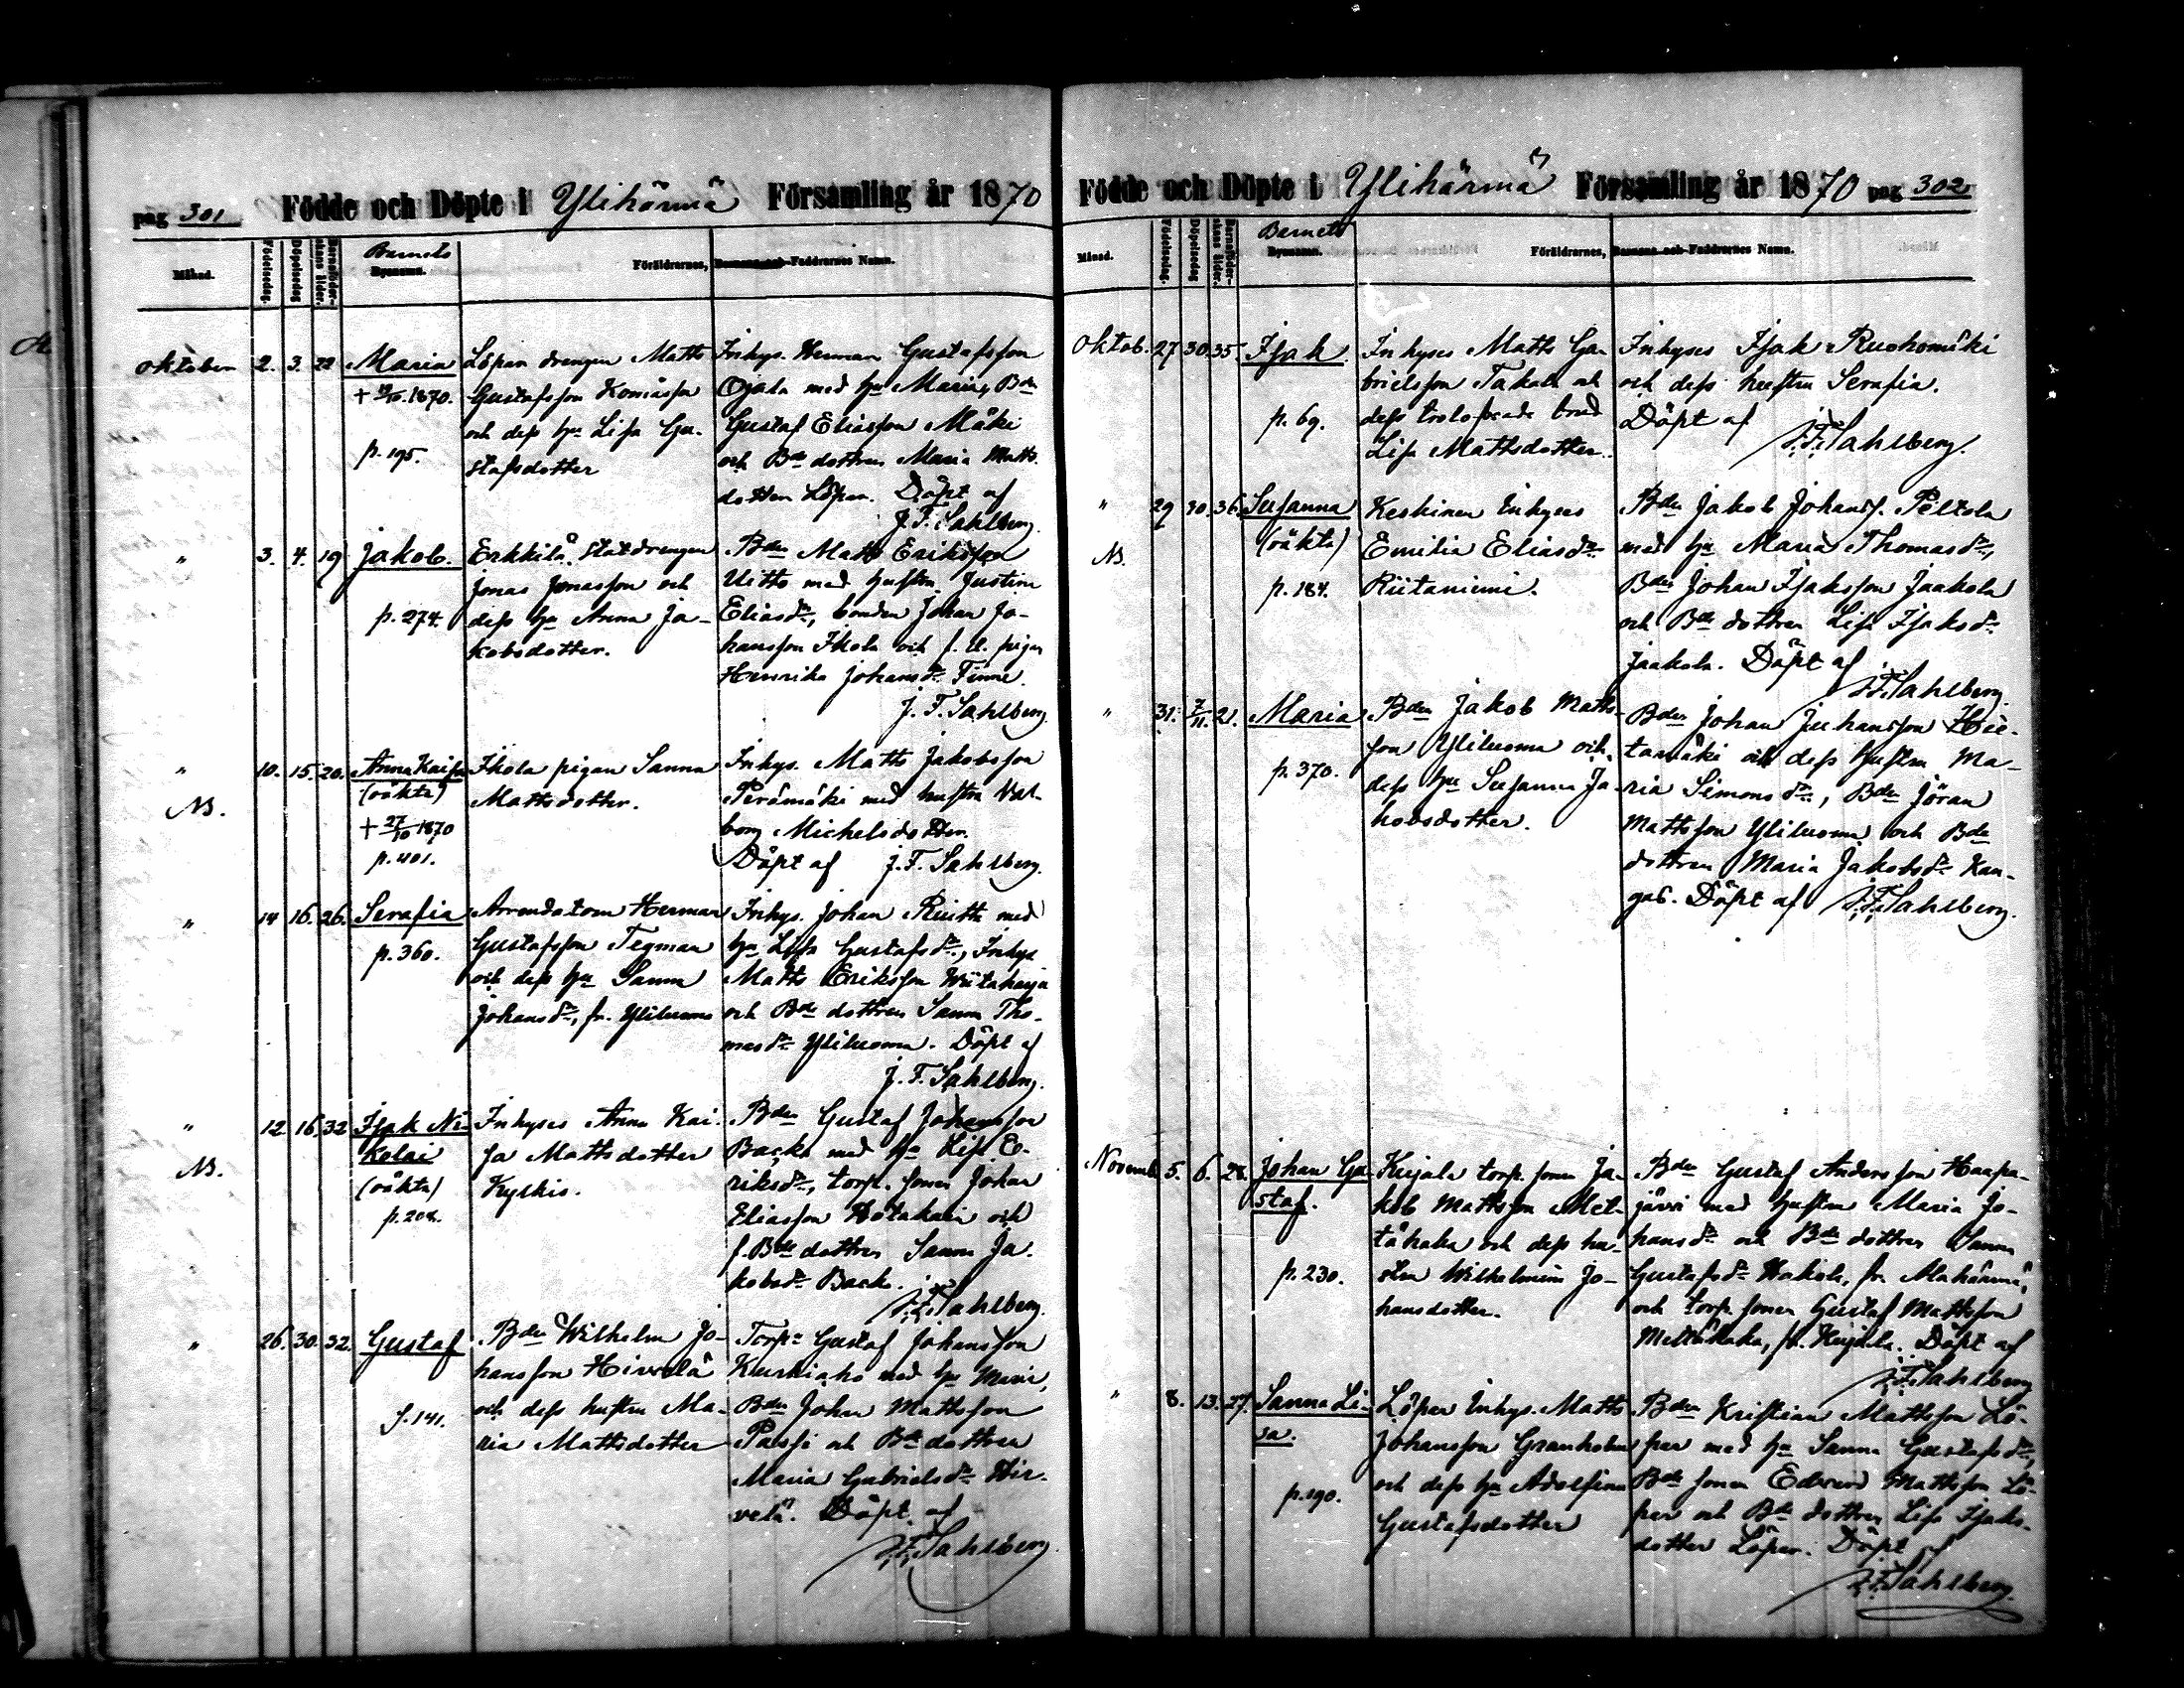 pag 301 Födde och Döpte i Ylihärmä Församling år 1870
Månad. Födelsedag. Döpelsedag Barnaföderskans ålder. Barnets Bynamn. Föräldrarnes, Barnens och Faddrarnes Namn.
Oktober 2. 3. 22 Maria
+ 1870.
p. 195.
Löpar drengen Matts
Gustafsson
och dess hu Lisa Gu-
stafsdotter
Inhys. Herman Gustafsson
Ojala med hu Maria, Bdn
Gustaf Eliasson Mäki
och Bde dottren Maria Matts-
dotter Löpar. Döpt af
J. F. Sahlberg.
" 3. 4. 19 Jakob.
p. 274.
Erkkilä Statdrengen
Jonas Jonasson och
dess hu Anna Ja-
kobsdotter.
Bdn Matts Eriksson
Uitto med hustru Justina
Eliasdr, bonden Johan Jo-
hansson Ikola och f. d. pigan
Henrika Johansdr Finne.
J. F. Sahlberg.
" 10. 15. 20. Anna Kaisa
NB. (oäkta)
+ 27/10 1870
p. 401.
Ikola pigan Sanna
Mattsdotter.
Inhys. Matts Jakobsson
Perämäki med hustru Val-
borg Michelsdotter.
Döpt af J. F. Sahlberg.
" 14 16. 26. Serafia
p. 360.
Arrendatorn Herman
Gustafsson Tegman
och dess hu Sanna
Johansdr, fr. Yliluoma
Inhys. Johan Riutta med
hu Lisa Gustafsdr, Inhys
Matts Eriksson Wiitaharja
och Bde dottren Sanna Tho-
masdr Yliluoma. Döpt af
J. F. Sahlberg.
" 12 16. 32 Isak Ni-
NB. kolai
(oäkta)
p. 204.
Inhyses Anna Kai-
sa Mattsdotter
Kyskis.
Bdn Gustaf Johansson
Backa med hu Lisa E-
riksdr, torp. sonen Johan
Eliasson Hotakain och
f. Bde dottren Sanna Ja-
kobsdr Back.
J. F. Sahlberg.
" 26. 30. 32. Gustaf
p. 141.
Bdn Wilhelm Jo-
hansson Hirvelä
och dess hustru Ma-
ria Mattsdotter
Torpn Gustaf Johansson
Kuskiaho med hu Maria,
Bdn Johan Mattsson
Passi och Bde dottren
Maria Gabrielsdr Hir-
velä. Döpt af
J. F. Sahlberg
Födde och Döpte i Ylihärmä Församling år 1870 pag 302
Månad. Födelsedag. Döpelsedag Barnaföderskans ålder. Barnets Bynamn. Föräldrarnes, Barnens och Faddrarnes Namn.
Oktob. 27 30. 35 Isak.
p. 69.
Inhyses Matts Ga-
brielsson Takala och
dess trolofvade brud
Lisa Mattsdotter.
Inhyses Isak Ruohomäki
och dess hustru Serafia.
Döpt af
J. F. Sahlberg.
" 29 30. 36. Susanna
NB. (oäkta)
p. 184.
Keskinen Inhyses
Emilia Eliasdr
Riitaniemi.
Bdn Jakob Johanss. Peltola
med hu Maria Thomasdr,
Bdn Johan Isaksson Jaakola
och Bde dottren Lisa Isaksdr
Jaakola. Döpt af
J. F. Sahlberg
" 31. 2/11. 21. Maria
p. 370.
Bdn Jakob Matts-
son Yliluoma och
dess hu Susanna Ja-
kobsdotter.
Bdn Johan Juhansson Hie-
tamäki och dess hustru Ma-
ria Simonsdr, Bdn Jöran
Mattsson Yliluoma och Bde
dottren Maria Jakobsdr Kan-
gas. Döpt af J. F. Sahlberg.
Novemb. 5. 6. 28. Johan Gu-
staf.
p. 230.
Kujala torp. sonen Ja-
kob Mattsson Met-
tähaka och dess hu-
stru Wilhelmina Jo-
hansdotter.
Bdn Gustaf Andersson Haapa-
järvi med hustru Maria Jo-
hansdr och Bde dottren Sanna
Gustafsdr Hakola, fr. Alahärmä,
och torp. sonen Gustaf Mattsson
Mettähaka, fr. Kujala. Döpt af
J. F. Sahlberg
" 8. 13. 27. Sanna Li-
sa.
p. 190.
Löpar Inhys. Matts
Johansson Granholm
och dess hu Adolfina
Gustafsdotter
Bdn Kristian Mattsson Lö-
par med hu Sanna Gustafsdr,
Bde sonen Edvard Mattsson Lö-
par och Bde dottren Lisa Isaks-
dotter Löpar. Döpt af
J. F. Sahlberg.